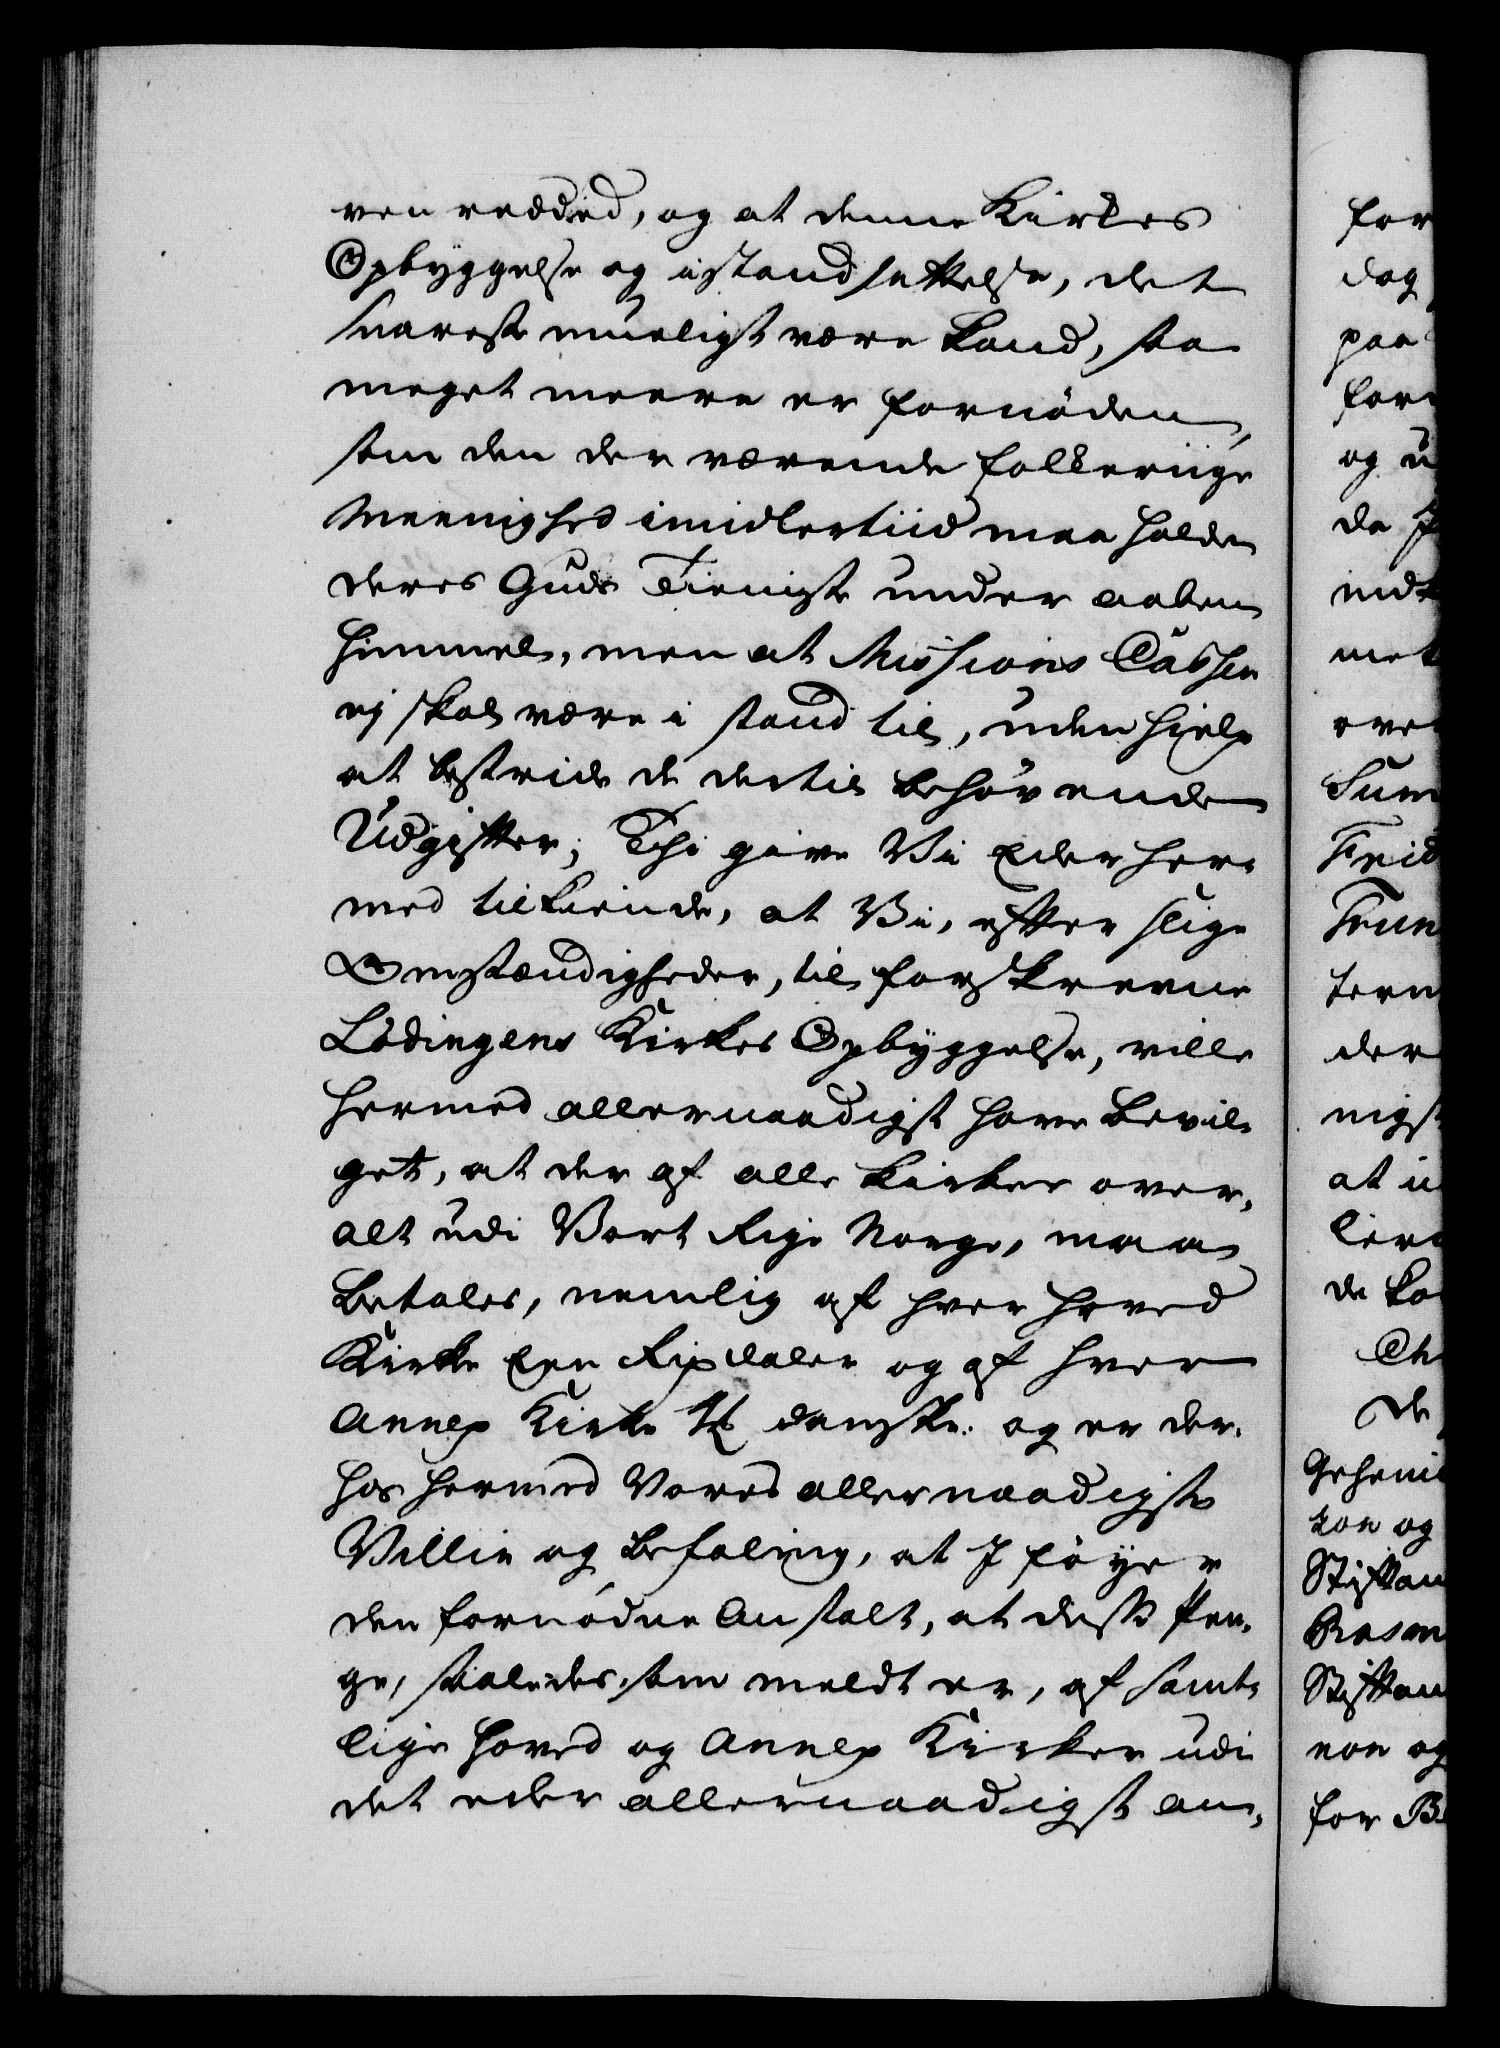 ven rædded, og at denne Kirkes
Opbyggelse og istandsættelse, det
snareste mueligt være kand, saa
meget meere er fornöden,
som den der værende folkeriige
Meenighed imidlertiid maa holde
deres Guds Tieniste under aaben
himmel, men at Missions Cassen
ej skal være i stand til, uden hielp
at bestride de dertil behövende
Udgifter; Thi give Vi Eder her-
med tilkiende, at Vi, efter slige
Omstændigheder, til forskrevne
Lödingens Kirkes Opbyggelse, ville
hermed allernaadigst have bevil-
get, at der af alle Kirker over-
alt udi Vort Rige Norge, maa
betales, nemlig af hver Hoved
Kirke Een Rixdaler og af hver
Annex Kirke danske. og er der-
hos hermed Vores allernaadigste
Villie og Befaling, at I föyer
den fornödne Anstalt, at disse Pen-
ge, saaledes, som meldt er, af samt-
lige Hoved og Annex Kirker udi
det eder allernaadigst an-
for
dog
paa
og
da
at
de
De
kon og
non og
for